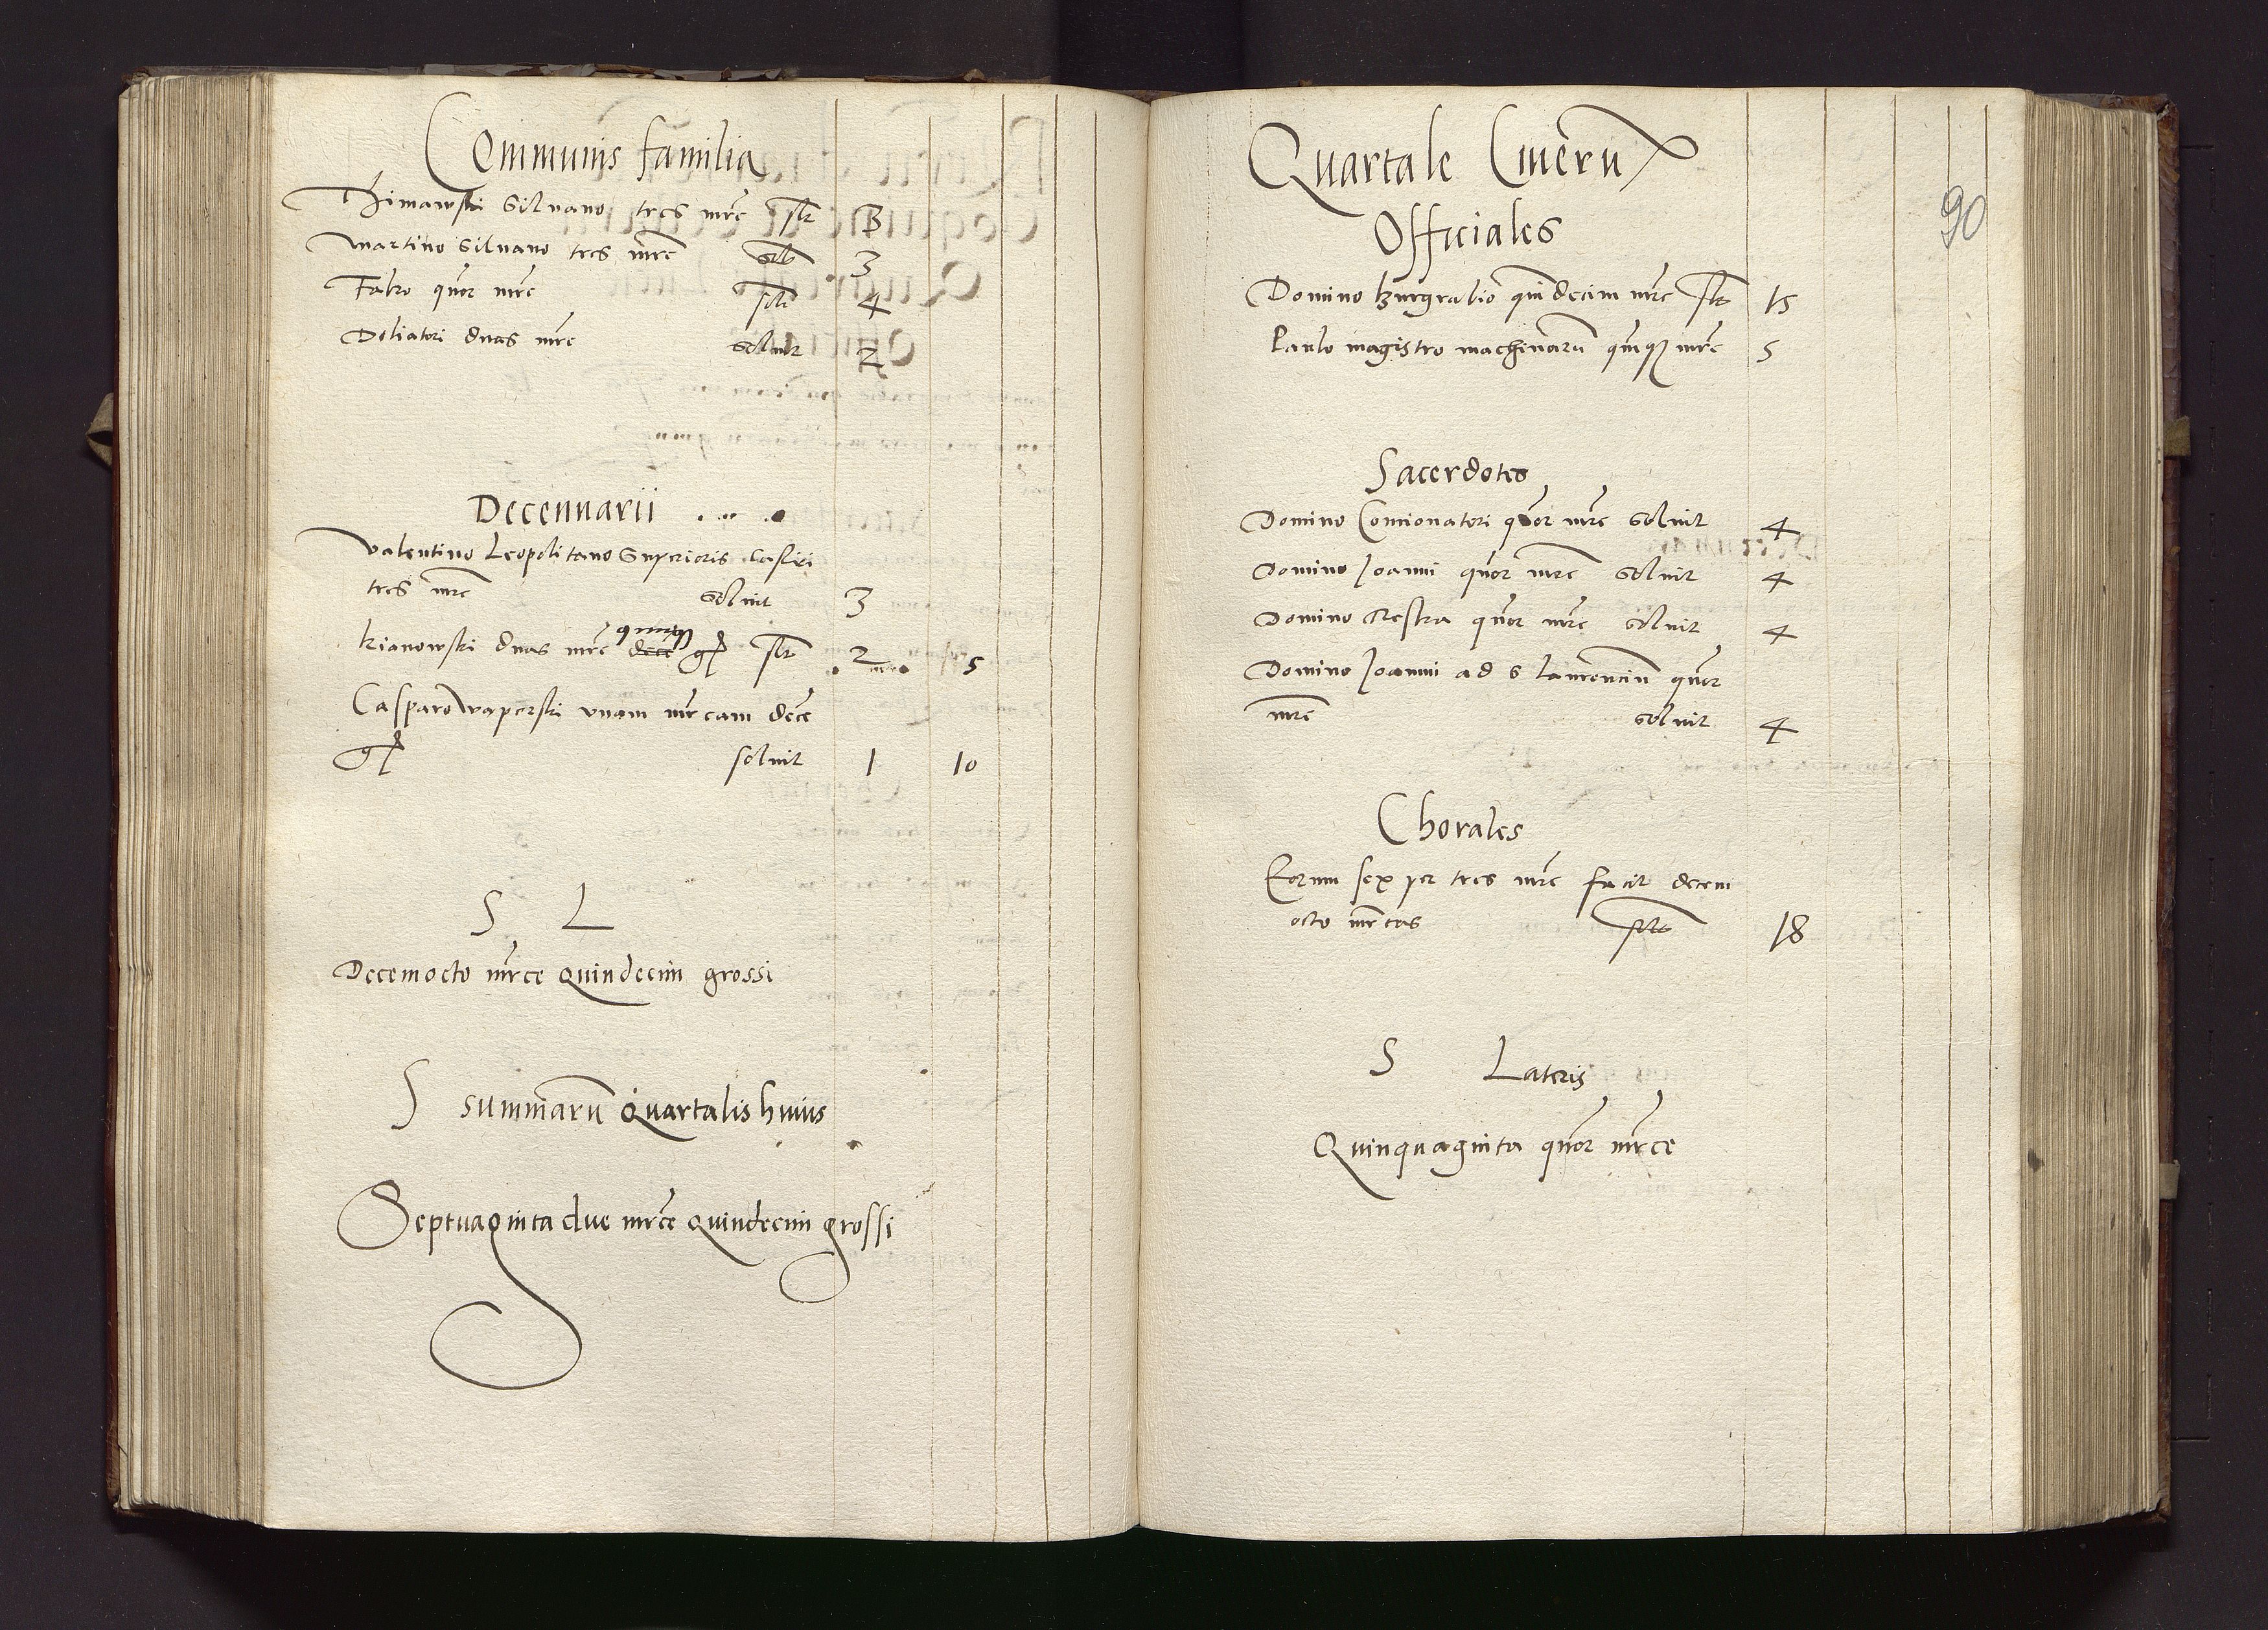 Communis familia
Thimawski Silvano tres mrc solt 3
Martino Silvano tres mrc solt 3
Fabro quor mrc solt 4
Doliatori duas mrc solvit 2
Decennarii
Valentino Leopolitano Superioris Castri
tres mrc solvit 3
Kianowski duas mrc quinq dece g solt 2 5
Casparo Waperski unam mrcam dece
g solvit 1 10
S L
Decemocto mrce quindecim grossi
S summarū Quartalis huius
Septuaginta due mrce quindecim grossi
90
Quartale Cinerū
Officiales
Domino Burgrabio quindecim mrc solt 15
Paulo magistro machinarū quinq mrc 5
Sacerdotes
Domino Concionatori quor mrc solvit 4
Domino Joanni quor mrc solvit 4
Domino Restra quor mrc solvit 4
Domino Joanni ad S Laurenciū quor
mrc solvit 4
Chorales
Eorum sex per tres mrc facit decem
octo mrcas solt 18
S Lateris
Quinquaginta quor mrce